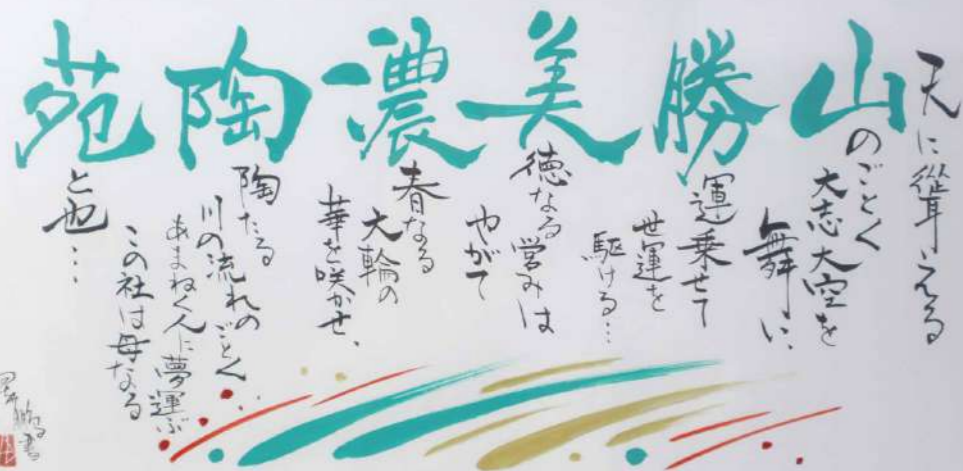 天に聳える
山のごとく
大志大空を
舞に、
勝運乗せて
世運を
駆ける…
美徳なる
営みは
やがて
濃春なる
大輪の
華を咲かせ、
陶陶たる
川の流れのごとく…
あまねく人に夢運ぶ
この社は母なる
苑と也…